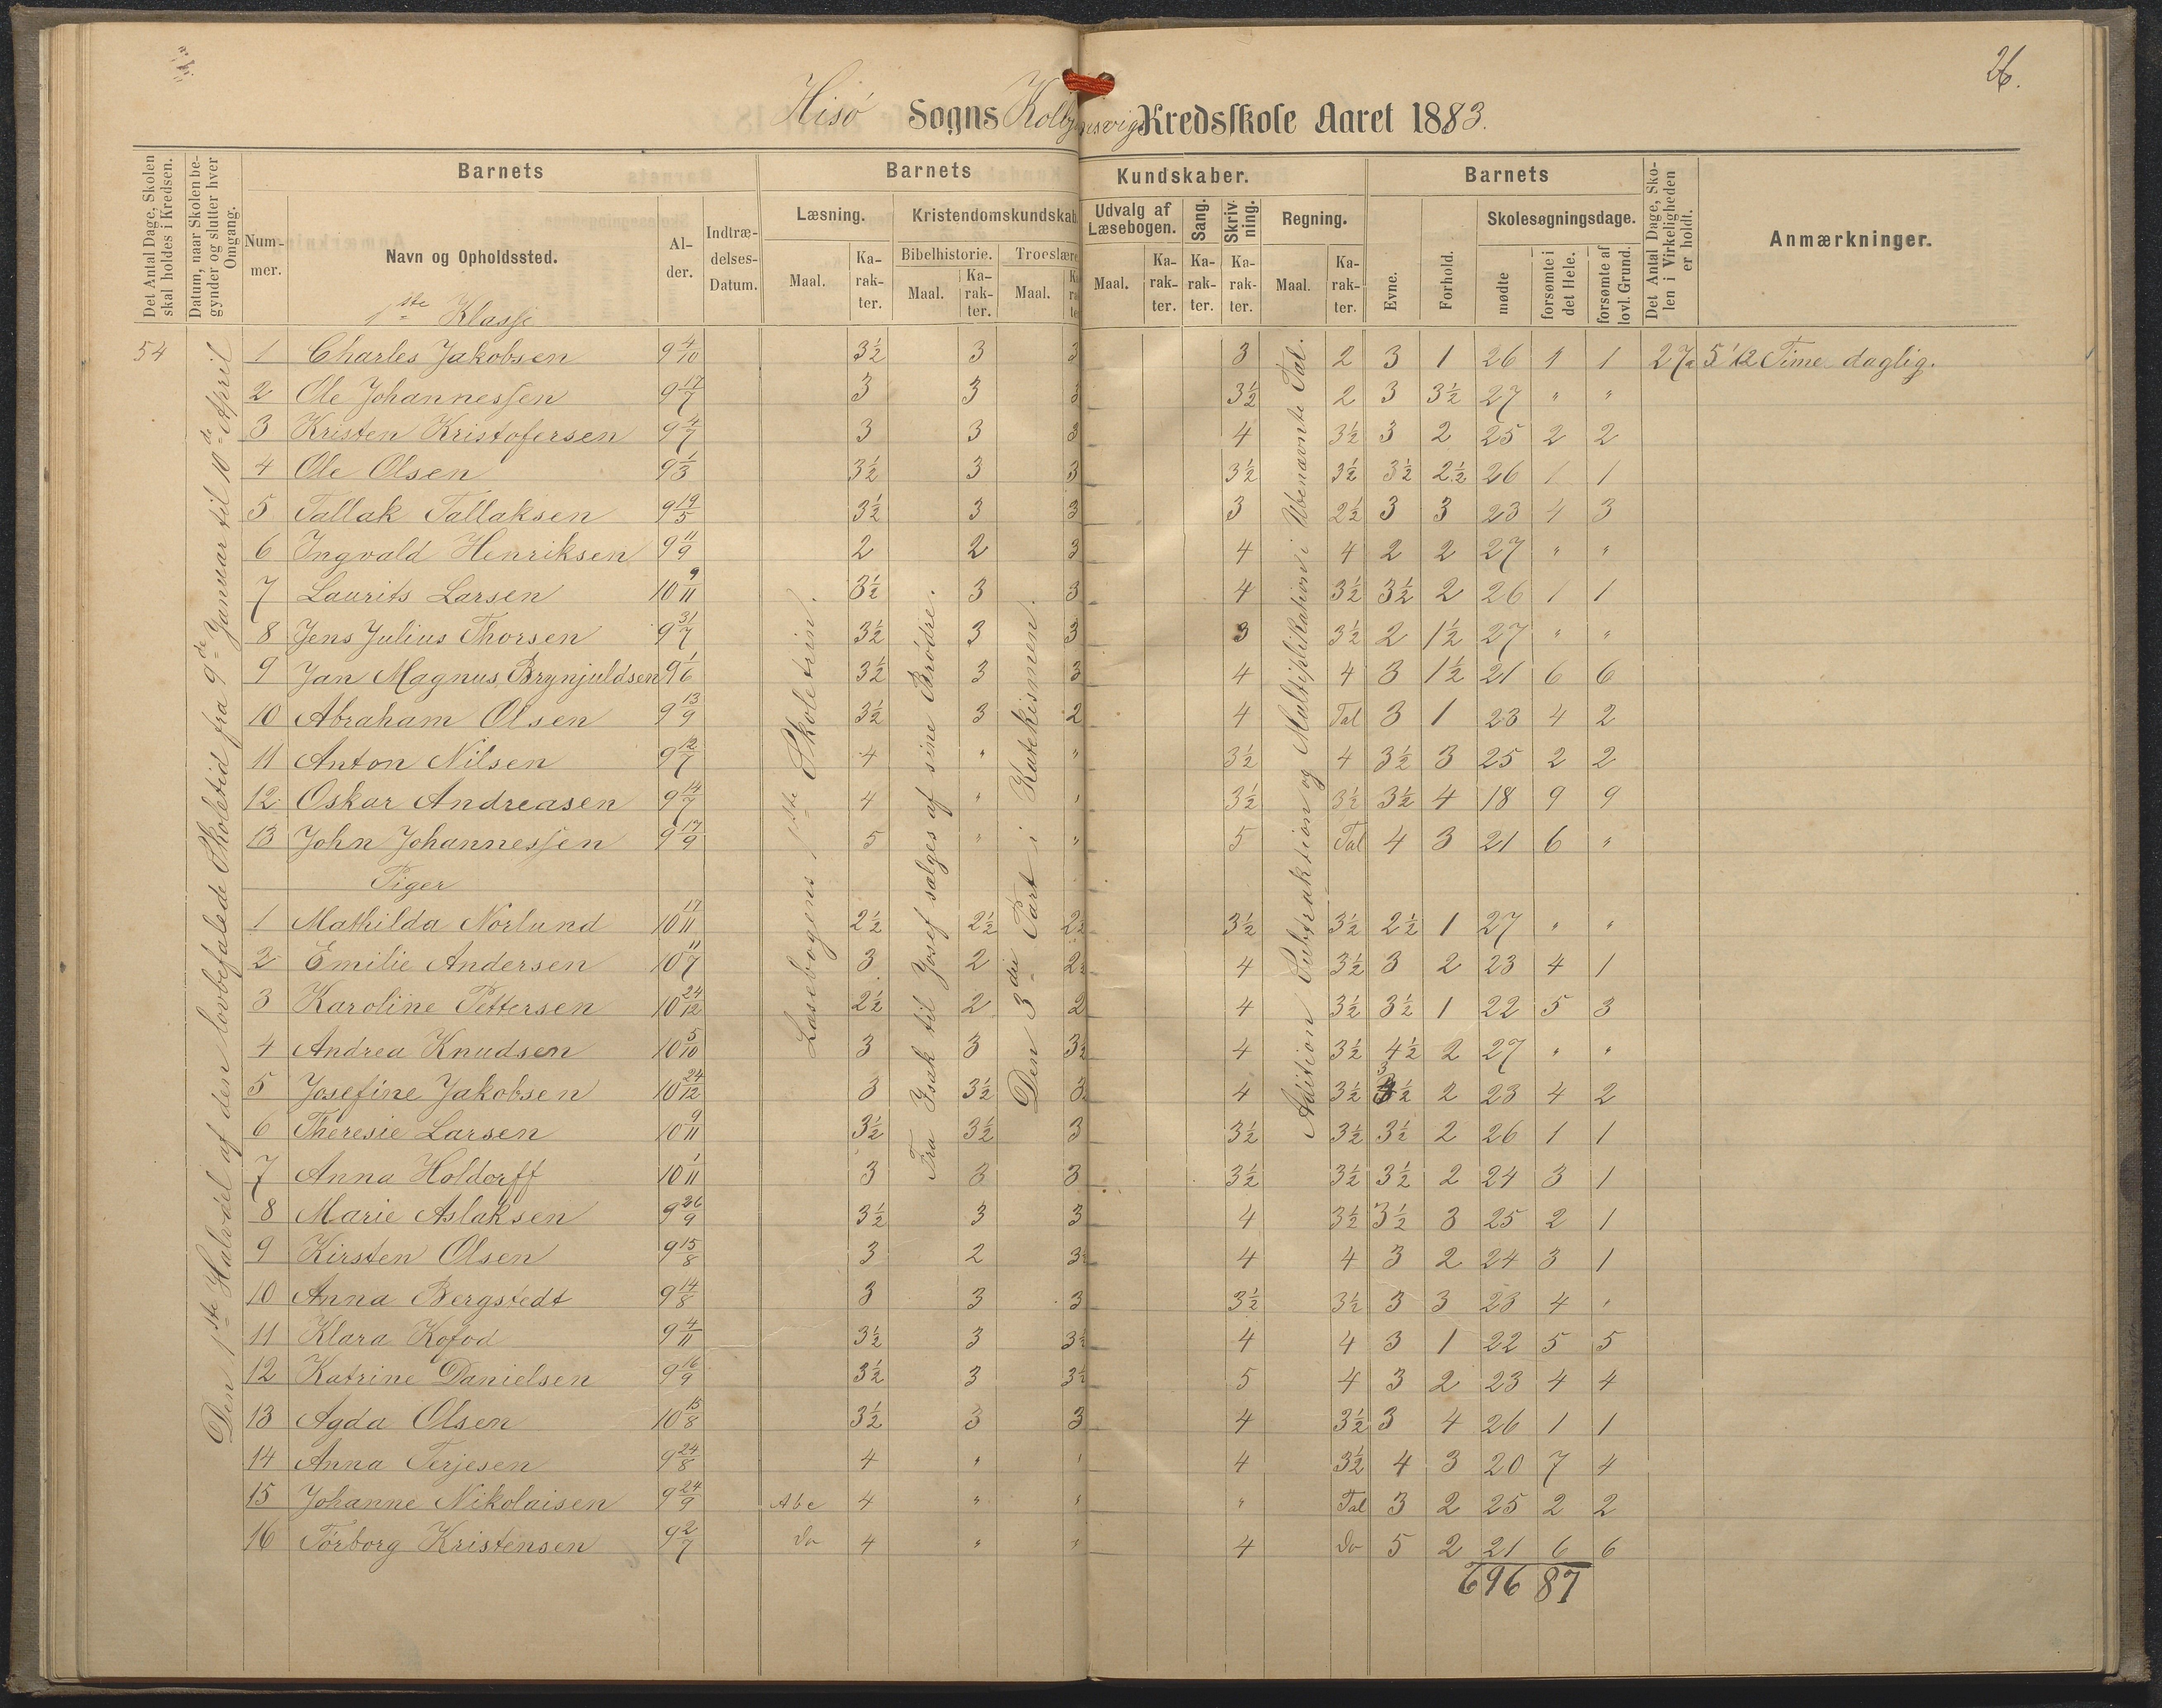 26.
Hisø Sogns Kolbjørnsvigs Kredsskole Aaret 1883.
Det Antal Dage, Skolen skal holdes i Kredsen.
Datum, naar Skolen begynder og slutter hver Omgang.
Barnets
Nummer.
Navn og Opholdssted.
Alder.
Indtrædelses-Datum.
Barnets Kundskaber.
Læsning.
Maal.
Karakter.
Kristendomskundskab
Bibelhistorie.
Maal.
Karakter.
Troeslære
Maal.
Udvalg af Læsebogen.
Maal.
Karakter.
Sang.
Karakter.
Skrivning.
Karakter.
Regning.
Maal.
Karakter.
Barnets
Evne.
Forhold.
Skolesøgningsdage.
mødte
forsømte i det Hele.
forsømte af lovl. Grund.
Det Antal Dage, Skolen i Virkeligheden er holdt.
Anmærkninger.
54
Den 1ste Halvdel af den lovbefalede Skoletid fra 9de Januar til 10de April
Læsebogens 1ste Skoletrin.
Fra Isak til Josef sælges af sine Brødre.
Den 3die Part i Katekismen.
Adition Subtraktion og Multiplikation i Ubenævnte Tal.
1ste Klasse
1 Charles Jakobsen 9 4/10 3½ 3 3 3 2 3 1 26 1 1 27 5 1/2 Time daglig.
2 Ole Johannessen 9 17/7 3 3 3 3½ 2 3 3½ 27 " "
3 Kristen Kristofersen 9 4/7 3 3 3 4 3½ 3 2 25 2 2
4 Ole Olsen 9 1/3 3½ 3 3 3½ 3½ 3½ 2½ 26 1 1
5 Tallak Tallaksen 9 19/5 3½ 3 3 3 2½ 3 3 23 4 3
6 Ingvald Henriksen 9 11/9 2 2 3 4 4 2 2 27 " "
7 Laurits Larsen 10 9/11 3½ 3 3 4 3½ 3½ 2 26 1 1
8 Jens Julius Thorsen 9 31/7 3½ 3 3 3 3½ 2 1½ 27 " "
9 Jan Magnus Brynjuldsen 9 1/6 3½ 3 3 4 4 3 1½ 21 6 6
10 Abraham Olsen 9 13/9 3½ 3 2 4 Tal 3 1 23 4 2
11 Anton Nilsen 9 12/7 4 " " 3½ 4 3½ 3 25 2 2
12 Oskar Andreasen 9 14/7 4 " " 3½ 3½ 3½ 4 18 9 9
13 John Johannessen 9 17/9 5 " " 5 Tal 4 3 21 6 "
Piger
1 Mathilda Norlund 10 17/11 2½ 2½ 2½ 3½ 3½ 2½ 1 27 " "
2 Emilie Andersen 10 11/7 3 2 2½ 4 3½ 3 2 23 4 1
3 Karoline Pettersen 10 24/12 2½ 2 2 4 3½ 3½ 1 22 5 3
4 Andrea Knudsen 10 5/10 3 3 3½ 4 3½ 4½ 2 27 " "
5 Josefine Jakobsen 10 24/12 3 3½ 3 4 3½ 3½ 2 23 4 2
6 Theresie Larsen 10 9/11 3½ 3½ 3 3½ 3½ 3½ 2 26 1 1
7 Anna Holdorff 10 1/11 3 3 3 3½ 3½ 3½ 2 24 3 1
8 Marie Aslaksen 9 26/9 3½ 3 3 4 3½ 3½ 3 25 2 1
9 Kirsten Olsen 9 15/8 3 2 3½ 4 4 3 2 24 3 1
10 Anna Bergstedt 9 14/8 3 3 3 3½ 3½ 3 3 23 4 "
11 Klara Kofod 9 4/11 3½ 3 3½ 4 4 3 1 22 5 5
12 Katrine Danielsen 9 16/9 3½ 3 3½ 5 4 3 2 23 4 4
13 Agda Olsen 10 15/8 3½ 3 3 4 3½ 3 4 26 1 1
14 Anna Terjesen 9 24/8 4 " " 4 3½ 4 3 20 7 4
15 Johanne Nikolaisen 9 24/9 Abc 4 " " " Tal 3 2 25 2 2
16 Torborg Kristensen 9 2/7 do 4 " " 4 do 5 2 21 6 6
696 87